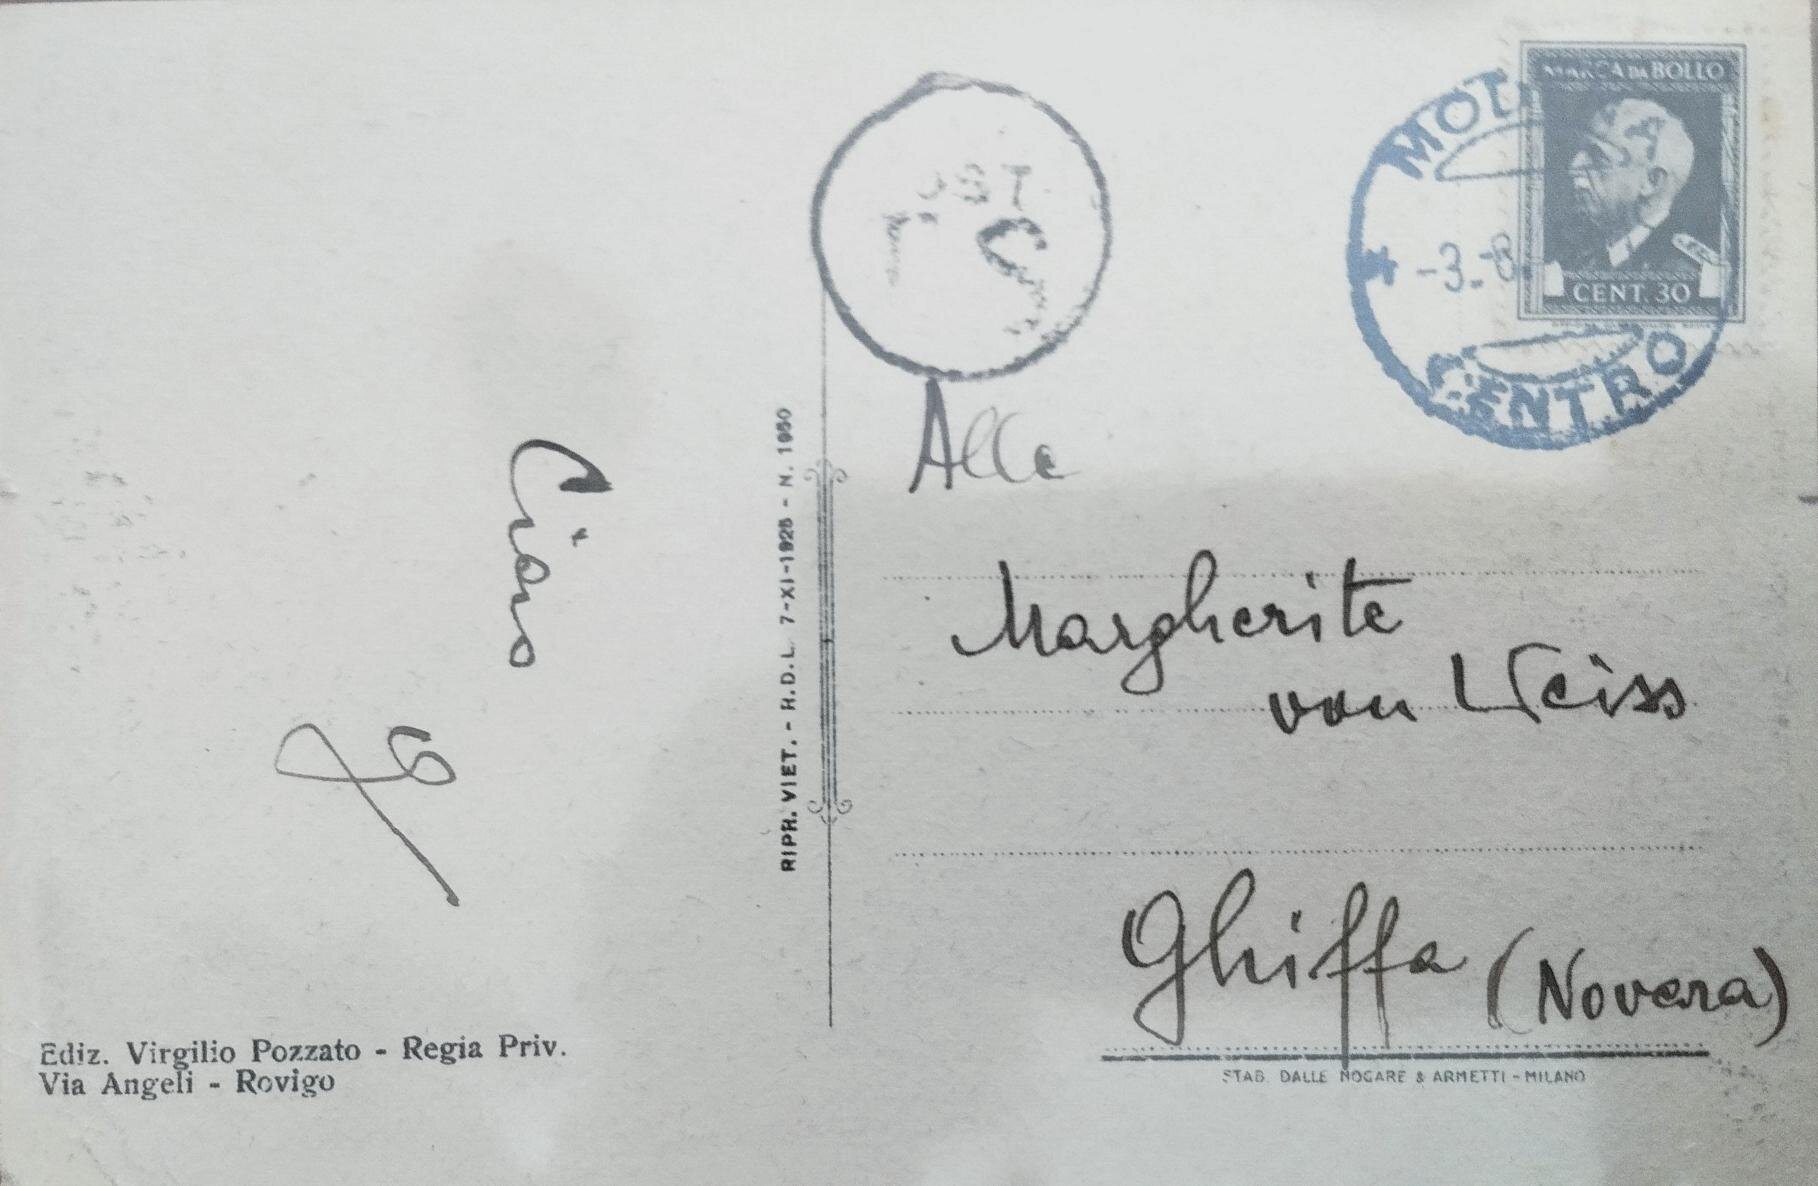 Ciao
Ediz. Virgilio Pozzato - Regia Priv.
Via Angeli - Rovigo
RIPR. VIET. - R.D.L. 7-XI-1925 - N. 1950
MARCA DA BOLLO
CENT. 30
-3.-8.
CENTRO
Alla
Margherita
von Weiss
Ghiffa (Novara)
STAB. DALLE NOGARE & ARMETTI - MILANO